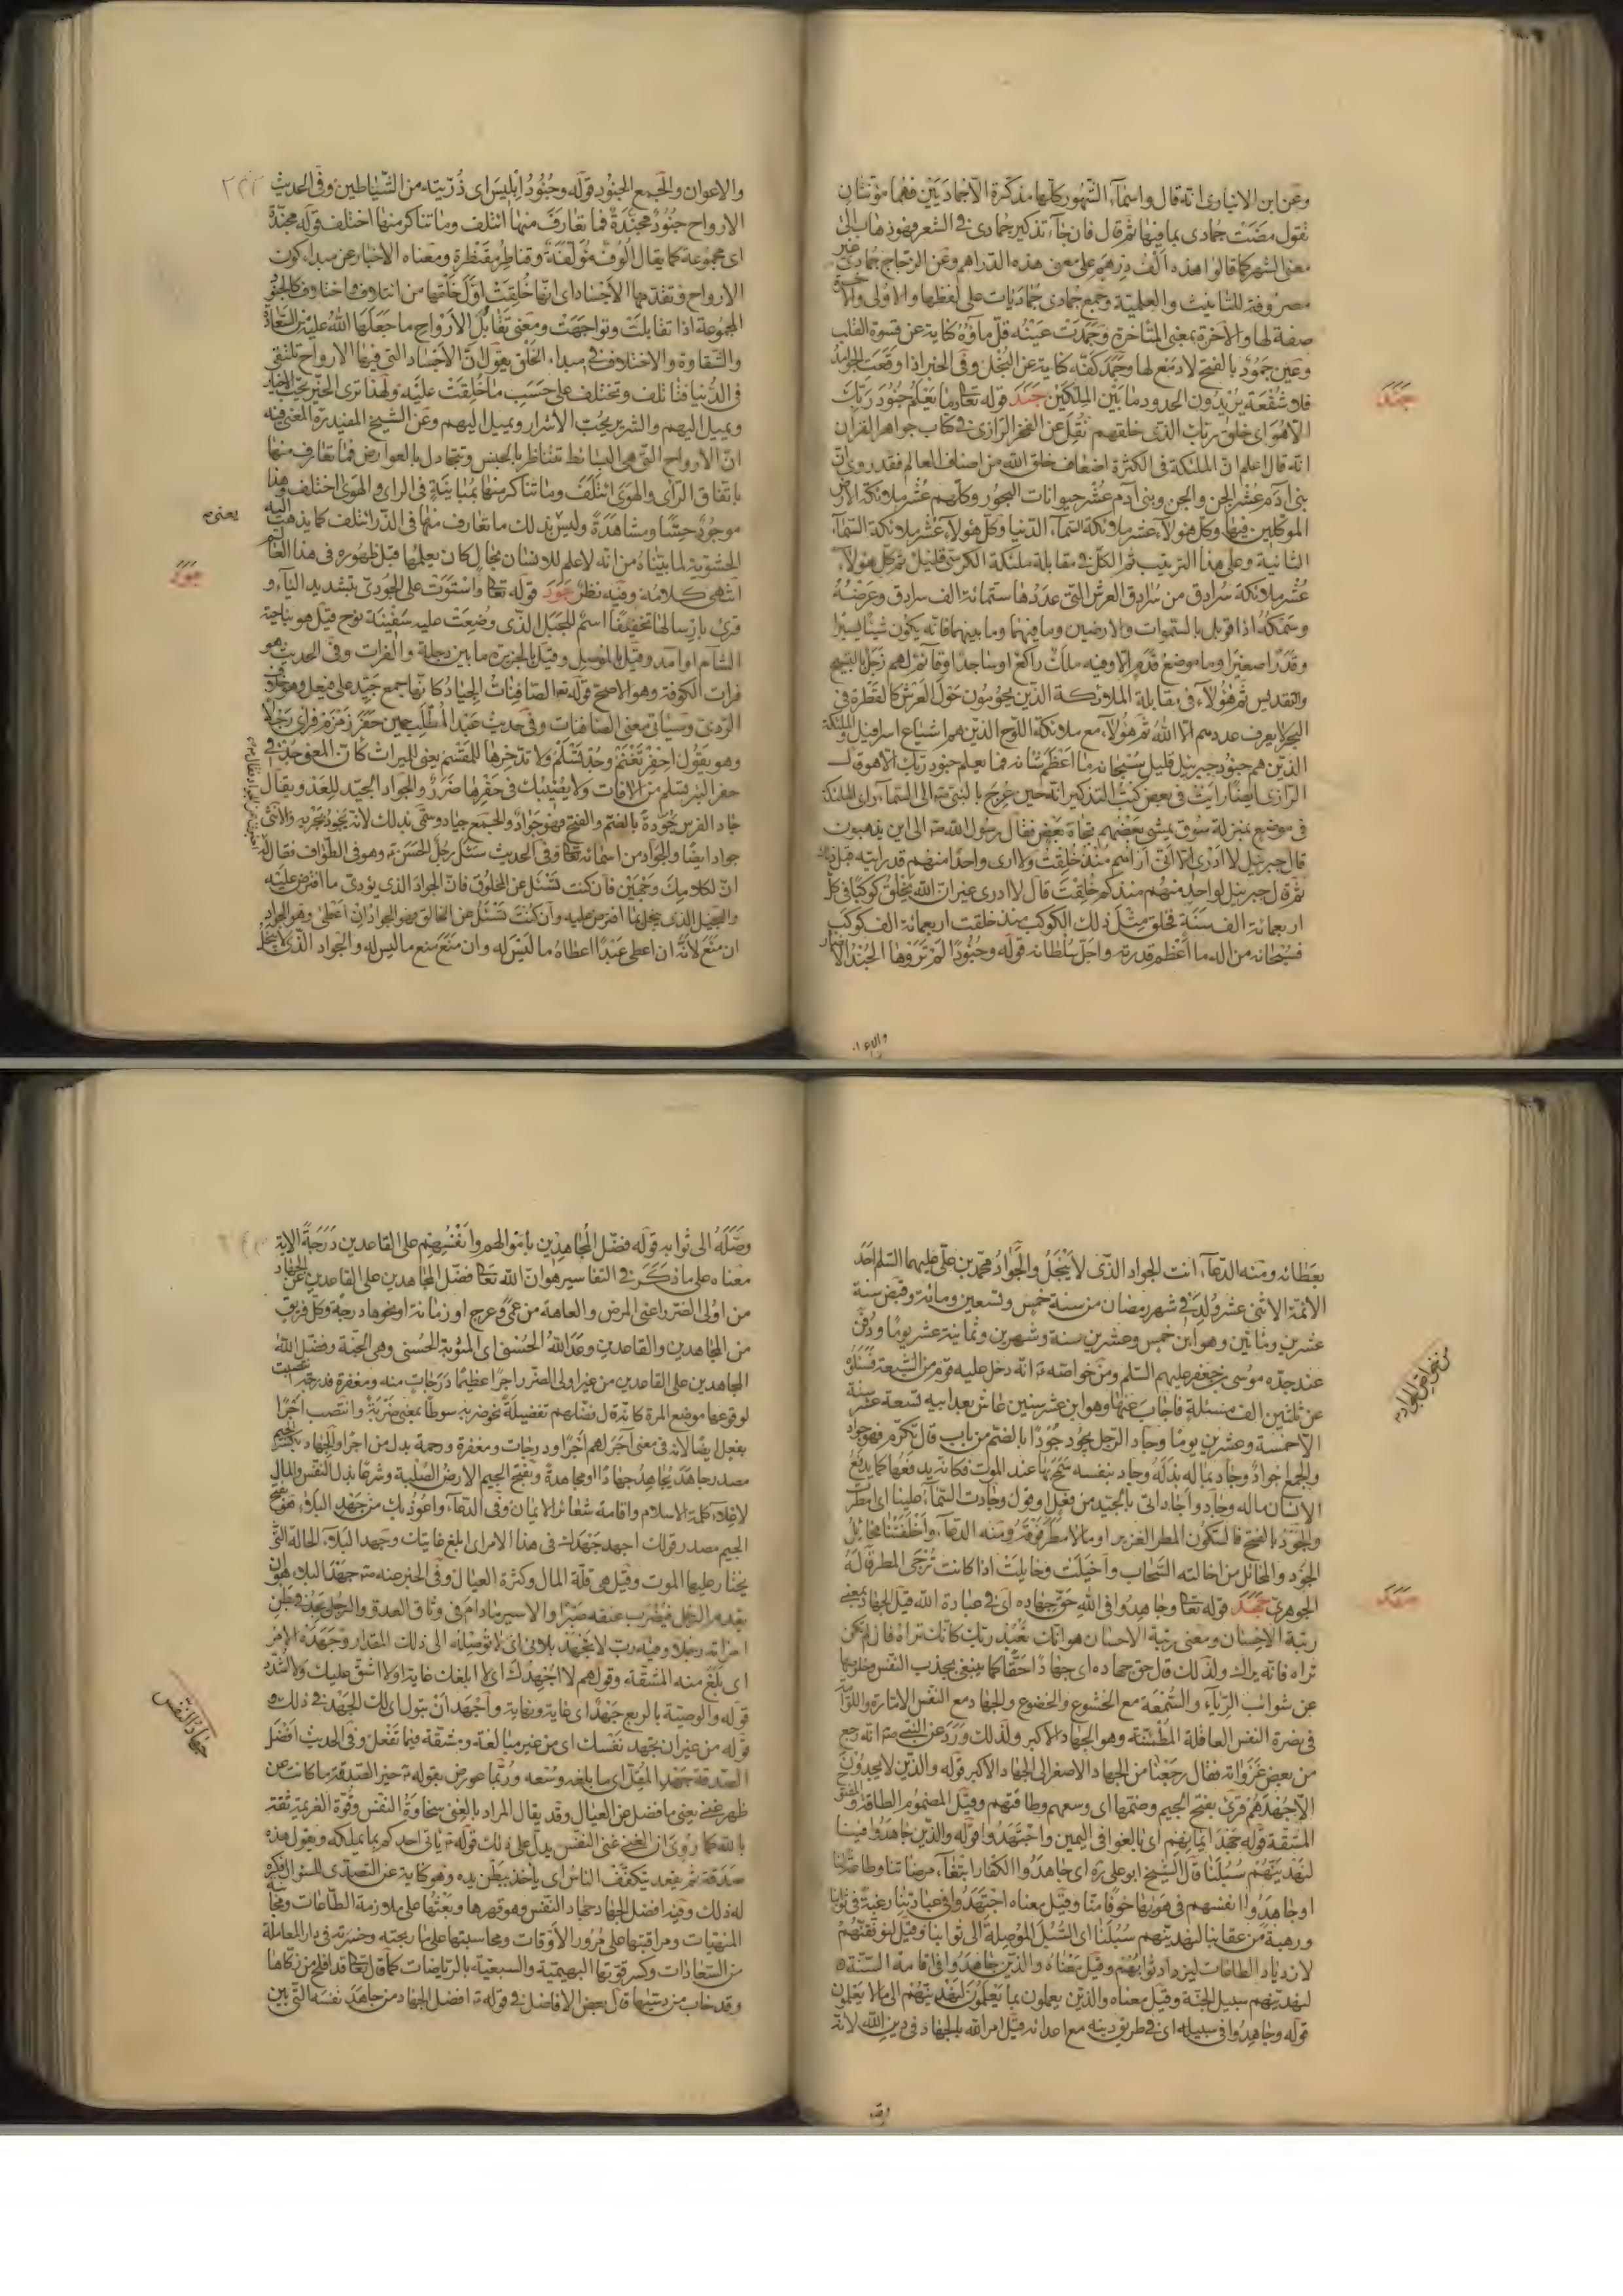 وعن ابن الانبارى انه قال واسمآء الشهور كلها مذكرة الا جماديين فهما مؤنثان
تقول مضت جمادى بما فيها ثم قال فان جآء تذكير جمادى فى الشعر فهو ذهاب الى
معنى الشهر كما قالوا هذه الف درهم على معنى هذه الدراهم وعن الزجاج جمادى غير
مصروفة للتانيث والعلمية وجمع جمادى جماديات على لفظها والاولى والآخرة
صفة لها والآخرة بمعنى المتاخرة وجمدت عينه قل ماؤه كناية عن قسوة القلب
وعين جمود بالفتح لا دمع لها وجمد كفه كناية عن البخل وفى الخبر اذا وقعت الجوامد
فلا شفعة يريدون الحدود ما بين الملكين جند قوله تعا وما يعلم جنود ربك
الا هو اى خلق ربك الذى خلقهم نقل عن الفخر الرازى فى كتاب جواهر القران
انه قال اعلم ان الملئكة فى الكثرة اضعاف خلق الله من اصناف العالم فقد روى ان
بنى آدم عشر الجن والجن وبنى آدم عشر حيوانات البحور وكلهم عشر ملائكة الارض
الموكلين فيها وكل هولآء عشر ملائكة السمآء الدنيا وكل هولآء عشر ملائكة السمآء
الثانية وعلى هذا الترتيب ثم الكل فى مقابلة ملئكة الكرسى قليل ثم كل هولآء
عشر ملائكة سرادق من سرادق العرش التى عددها ستمائة الف سرادق وعرضه
وسمكه اذا قوبل بالسموات والارضين وما فيهما وما بينهما فانه يكون شيئا يسيرا
وقدرا صغيرا وما موضع قدم الا وفيه ملك راكع او ساجد او قائم لهم زجل بالتسبيح
والتقديس ثم هؤلآء فى مقابلة الملائكة الذين يحومون حول العرش كالقطرة فى
البحر لا يعرف عددهم الا الله ثم هولآء مع ملائكة اللوح الذين هم اشياع اسرافيل والملئكة
الذين هم جنود جبرئيل قليل سبحانه ما اعظم شانه فما يعلم جنود ربك الا هو قال
الرازى ايضا رايت فى بعض كتب التذكير انه حين عرج بالنبى ص الى السمآء راى الملئكة
فى موضع بمنزلة سوق يمشى بعضهم تجاه بعض فقال رسول الله ص الى اين يذهبون
قال جبرئيل لا ادرى الا انى اراهم منذ خلقت ولا ارى واحدا منهم قد رايته قبل ذلك
ثم قال جبرئيل لواحد منهم منذ كم خلقت قال لا ادرى غير ان الله يخلق كوكبا فى كل
اربعمائة الف سنة فخلق مثل ذلك الكوكب منذ خلقت اربعمائة الف كوكب
فسبحانه من اله ما اعظم قدرته واجل سلطانه قوله وجنودا لم تروها الجند الانصار
جند
والاعوان والجمع الجنود قوله وجنود ابليس اى ذريته من الشياطين وفى الحديث
الارواح جنود مجندة فما تعارف منها ائتلف وما تناكر منها اختلف قوله مجندة
اى مجموعة كما يقال الوف مؤلفة وقناطير مقنطرة ومعناه الاخبار عن مبداء كون
الارواح وتقدمها الاجساد اى انها خلقت اول خلقها من ائتلاف واختلاف كالجنود
المجموعة اذا تقابلت وتواجهت ومعنى تقابل الارواح ما جعلها الله عليه من السعادة
والشقاوة والاختلاف فى مبداء الخلق يقول ان الاجساد التى فيها الارواح تلتقى
فى الدنيا فتاتلف وتختلف على حسب ما خلقت عليه ولهذا ترى الخير يحب الاخيار
ويميل اليهم والشرير يحب الاشرار ويميل اليهم وعن الشيخ المفيد ره المعنى فيه
ان الارواح التى هى البسائط تتناظر بالجنس وتتجادل بالعوارض فما تعارف منها
باتفاق الراى والهوى ائتلف وما تناكر منها بمباينة فى الراى والهوى اختلف وهذا
موجود حسا ومشاهدة وليس بذلك ما تعارف منها فى الذر ائتلف كما يذهب اليه
الحشوية لما بيناه من انه لا علم للانسان بحال كان يعلمها قبل ظهوره فى هذا العالم
انتهى كلامه وفيه نظر جود قوله تعا واستوت على الجودى بتشديد اليآء و
قرئ بارسالها تخفيفا اسم للجبل الذى وضعت عليه سفينة نوح قيل هو بناحية
الشام او آمد وقيل بالموصل وقيل بالجزيرة ما بين دجلة والفرات وفى الحديث هو
فرات الكوفة وهو الاصح قوله تعا الصافنات الجياد كانها جمع جيد على فيعل وهو خلاف
الردى وسياتى معنى الصافنات وفى حديث عبد المطلب حين حفر زمزم فراى رجلا
وهو يقول احفر تغنم وجد تسلم ولا تدخرها للمقسم يعنى الميراث كان المعنى جد فى
حفر البئر تسلم من الافات ولا يصيبك فى حفرها ضرر والجواد الجيد للعدو يقال
جاد الفرس جودة بالضم والفتح فهو جواد والجمع جياد وسمى بذلك لانه يجود بجريه والانثى
جواد ايضا والجواد من اسمائه تعا وفى الحديث سئل رجل الحسن ع وهو فى الطواف فقال له
ان لكلامك وجهين فان كنت تسئل عن المخلوق فان الجواد الذى يؤدى ما افترض عليه
والبخيل الذى يبخل بما افترض عليه وان كنت تسئل عن الخالق فهو الجواد ان اعطى وهو الجواد
ان منع لانه ان اعطى عبدا اعطاه ما ليس له وان منع منع ما ليس له والجواد الذى لا يبخل
يعنى
جود
بعطائه ومنه الدعآء انت الجواد الذى لا يبخل والجواد محمد بن على عليهما السلم احد
الائمة الاثنى عشر ولد فى شهر رمضان من سنة خمس وتسعين ومائة وقبض سنة
عشرين ومائتين وهو ابن خمس وعشرين سنة وشهرين وثمانية عشر يوما ودفن
عند جده موسى بن جعفر عليهم السلم ومن خواصه ع انه دخل عليه قوم من الشيعة فسئلوه
عن ثلثين الف مسئلة فاجاب عنها وهو ابن عشر سنين عاش بعد ابيه تسعة عشر سنة
الا خمسة وعشرين يوما وجاد الرجل يجود جودا بالضم من باب قال تكرم فهو جواد
والجمع اجواد وجاد بماله بذله وجاد بنفسه سمح بها عند الموت فكانه يدفعها كما يدفع
الانسان ماله وجاد واجاد اتى بالجيد من فعل او قول وجادت السمآء علينا اى مطرت
والجود بالفتح فالسكون المطر الغزير او ما لا مطر فوقه ومنه الدعآء واخلفتنا مخائل
الجود والمخائل من اخالت السحاب واخيلت وخايلت اذا كانت ترجى المطر قاله
الجوهرى جهد قوله تعا وجاهدوا فى الله حق جهاده اى فى عبادة الله قيل الجهاد بمعنى
رتبة الاحسان ومعنى رتبة الاحسان هو انك تعبد ربك كانك تراه فان لم تكن
تراه فانه يراك ولذلك قال حق جهاده اى جهادا حقا كما ينبغى بجذب النفس وخلوصها
عن شوائب الريآء والسمعة مع الخشوع والخضوع والجهاد مع النفس الامارة واللوامة
فى نصرة النفس العاقلة المطمئنة وهو الجهاد الاكبر ولذلك ورد عن النبى ص انه رجع
من بعض غزواته فقال رجعنا من الجهاد الاصغر الى الجهاد الاكبر قوله والذين لا يجدون
الا جهدهم قرئ بفتح الجيم وضمها اى وسعهم وطاقتهم وقيل المضموم الطاقة والمفتوح
المشقة قوله جهد ايمانهم اى بالغوا فى اليمين واجتهدوا قوله والذين جاهدوا فينا
لنهدينهم سبلنا قال الشيخ ابو على ره اى جاهدوا الكفار ابتغآء مرضاتنا وطاعة لنا
او جاهدوا انفسهم فى هواها خوفا منا وقيل معناه اجتهدوا فى عبادتنا رغبة فى ثوابنا
ورهبة من عقابنا لنهدينهم سبلنا اى السبل الموصلة الى ثوابنا وقيل لنوفقنهم
لازدياد الطاعات ليزداد ثوابهم وقيل معناه والذين جاهدوا فى اقامة السنة
لنهدينهم سبيل الجنة وقيل معناه والذين يعملون بما يعلمون لنهدينهم الى ما لا يعلمون
قوله وجاهدوا فى سبيله اى فى طريق دينه مع اعدائه قيل امر الله بالجهاد فى دين الله لانه
من خواص الجواد
جهد
وصلة الى ثوابه قوله فضل المجاهدين باموالهم وانفسهم على القاعدين درجة الاية
معناه على ما ذكر فى التفاسير هو ان الله تعا فضل المجاهدين على القاعدين عن الجهاد
من اولى الضرر اعنى المرض والعاهة من عمى وعرج او زمانة او نحوها درجة وكل فريق
من المجاهدين والقاعدين وعد الله الحسنى اى المثوبة الحسنى وهى الجنة وفضل الله
المجاهدين على القاعدين من غير اولى الضرر اجرا عظيما درجات منه ومغفرة فدرجة نصبت
لوقوعها موضع المرة كانه قال فضلهم تفضيلة نحو ضربه سوطا بمعنى ضربة وانتصب اجرا
بفعل ايضا لانه فى معنى آجرهم اجرا ودرجات ومغفرة ورحمة بدل من اجرا والجهاد بكسر الجيم
مصدر جاهد يجاهد جهادا ومجاهدة وبفتح الجيم الارض الصلبة وشرعا بذل النفس والمال
لاعلآء كلمة الاسلام واقامة شعائر الايمان وفى الدعآء واعوذ بك من جهد البلآء هو بفتح
الجيم مصدر قولك اجهد جهدك فى هذا الامر اى ابلغ غايتك وجهد البلآء الحالة التى
يختار عليها الموت وقيل هى قلة المال وكثرة العيال وفى الخبر عنه ص جهد البلاء هو ان
يقدم الرجل فيضرب عنقه صبرا والاسير ما دام فى وثاق العدو والرجل يجد فى بطن
امراته رجلا وفيه رب لا تجهد بلائى اى لا توصله الى ذلك المقدار وجهده الامر
اى بلغ منه المشقة وقولهم لا اجهدك اى لا ابلغك غاية او لا اشق عليك ولا اشدد
قوله والوصية بالربع جهدا اى غاية ونهاية واجهد ان تبول اى لك الجهد فى ذلك
قوله من غير ان تجهد نفسك اى من غير مبالغة ومشقة فيما تفعل وفى الحديث افضل
الصدقة جهد المقل اى ما بلغه وسعه وربما عورض بقوله ع خير الصدقة ما كانت عن
ظهر غنى يعنى ما فضل عن العيال وقد يقال المراد بالغنى سخاوة النفس وقوة العزيمة ثقة
بالله كما روى ان الغنى غنى النفس يدل على ذلك قوله ع ياتى احدكم بما يملكه ويقول هذه
صدقة ثم يقعد يتكفف الناس اى ياخذ ببطن يده وهو كناية عن التصدى للسؤال فكره
له ذلك وفيه افضل الجهاد جهاد النفس وهو قهرها وبعثها على ملازمة الطاعات ومجانبة
المنهيات ومراقبتها على مرور الاوقات ومحاسبتها على ما ربحته وخسرته فى دار المعاملة
من السعادات وكسر قوتها البهيمية والسبعية بالرياضات كما قال تعا قد افلح من زكاها
وقد خاب من دسيها قال بعض الافاضل فى قوله ع افضل الجهاد من جاهد نفسه التى بين
جهاد النفس